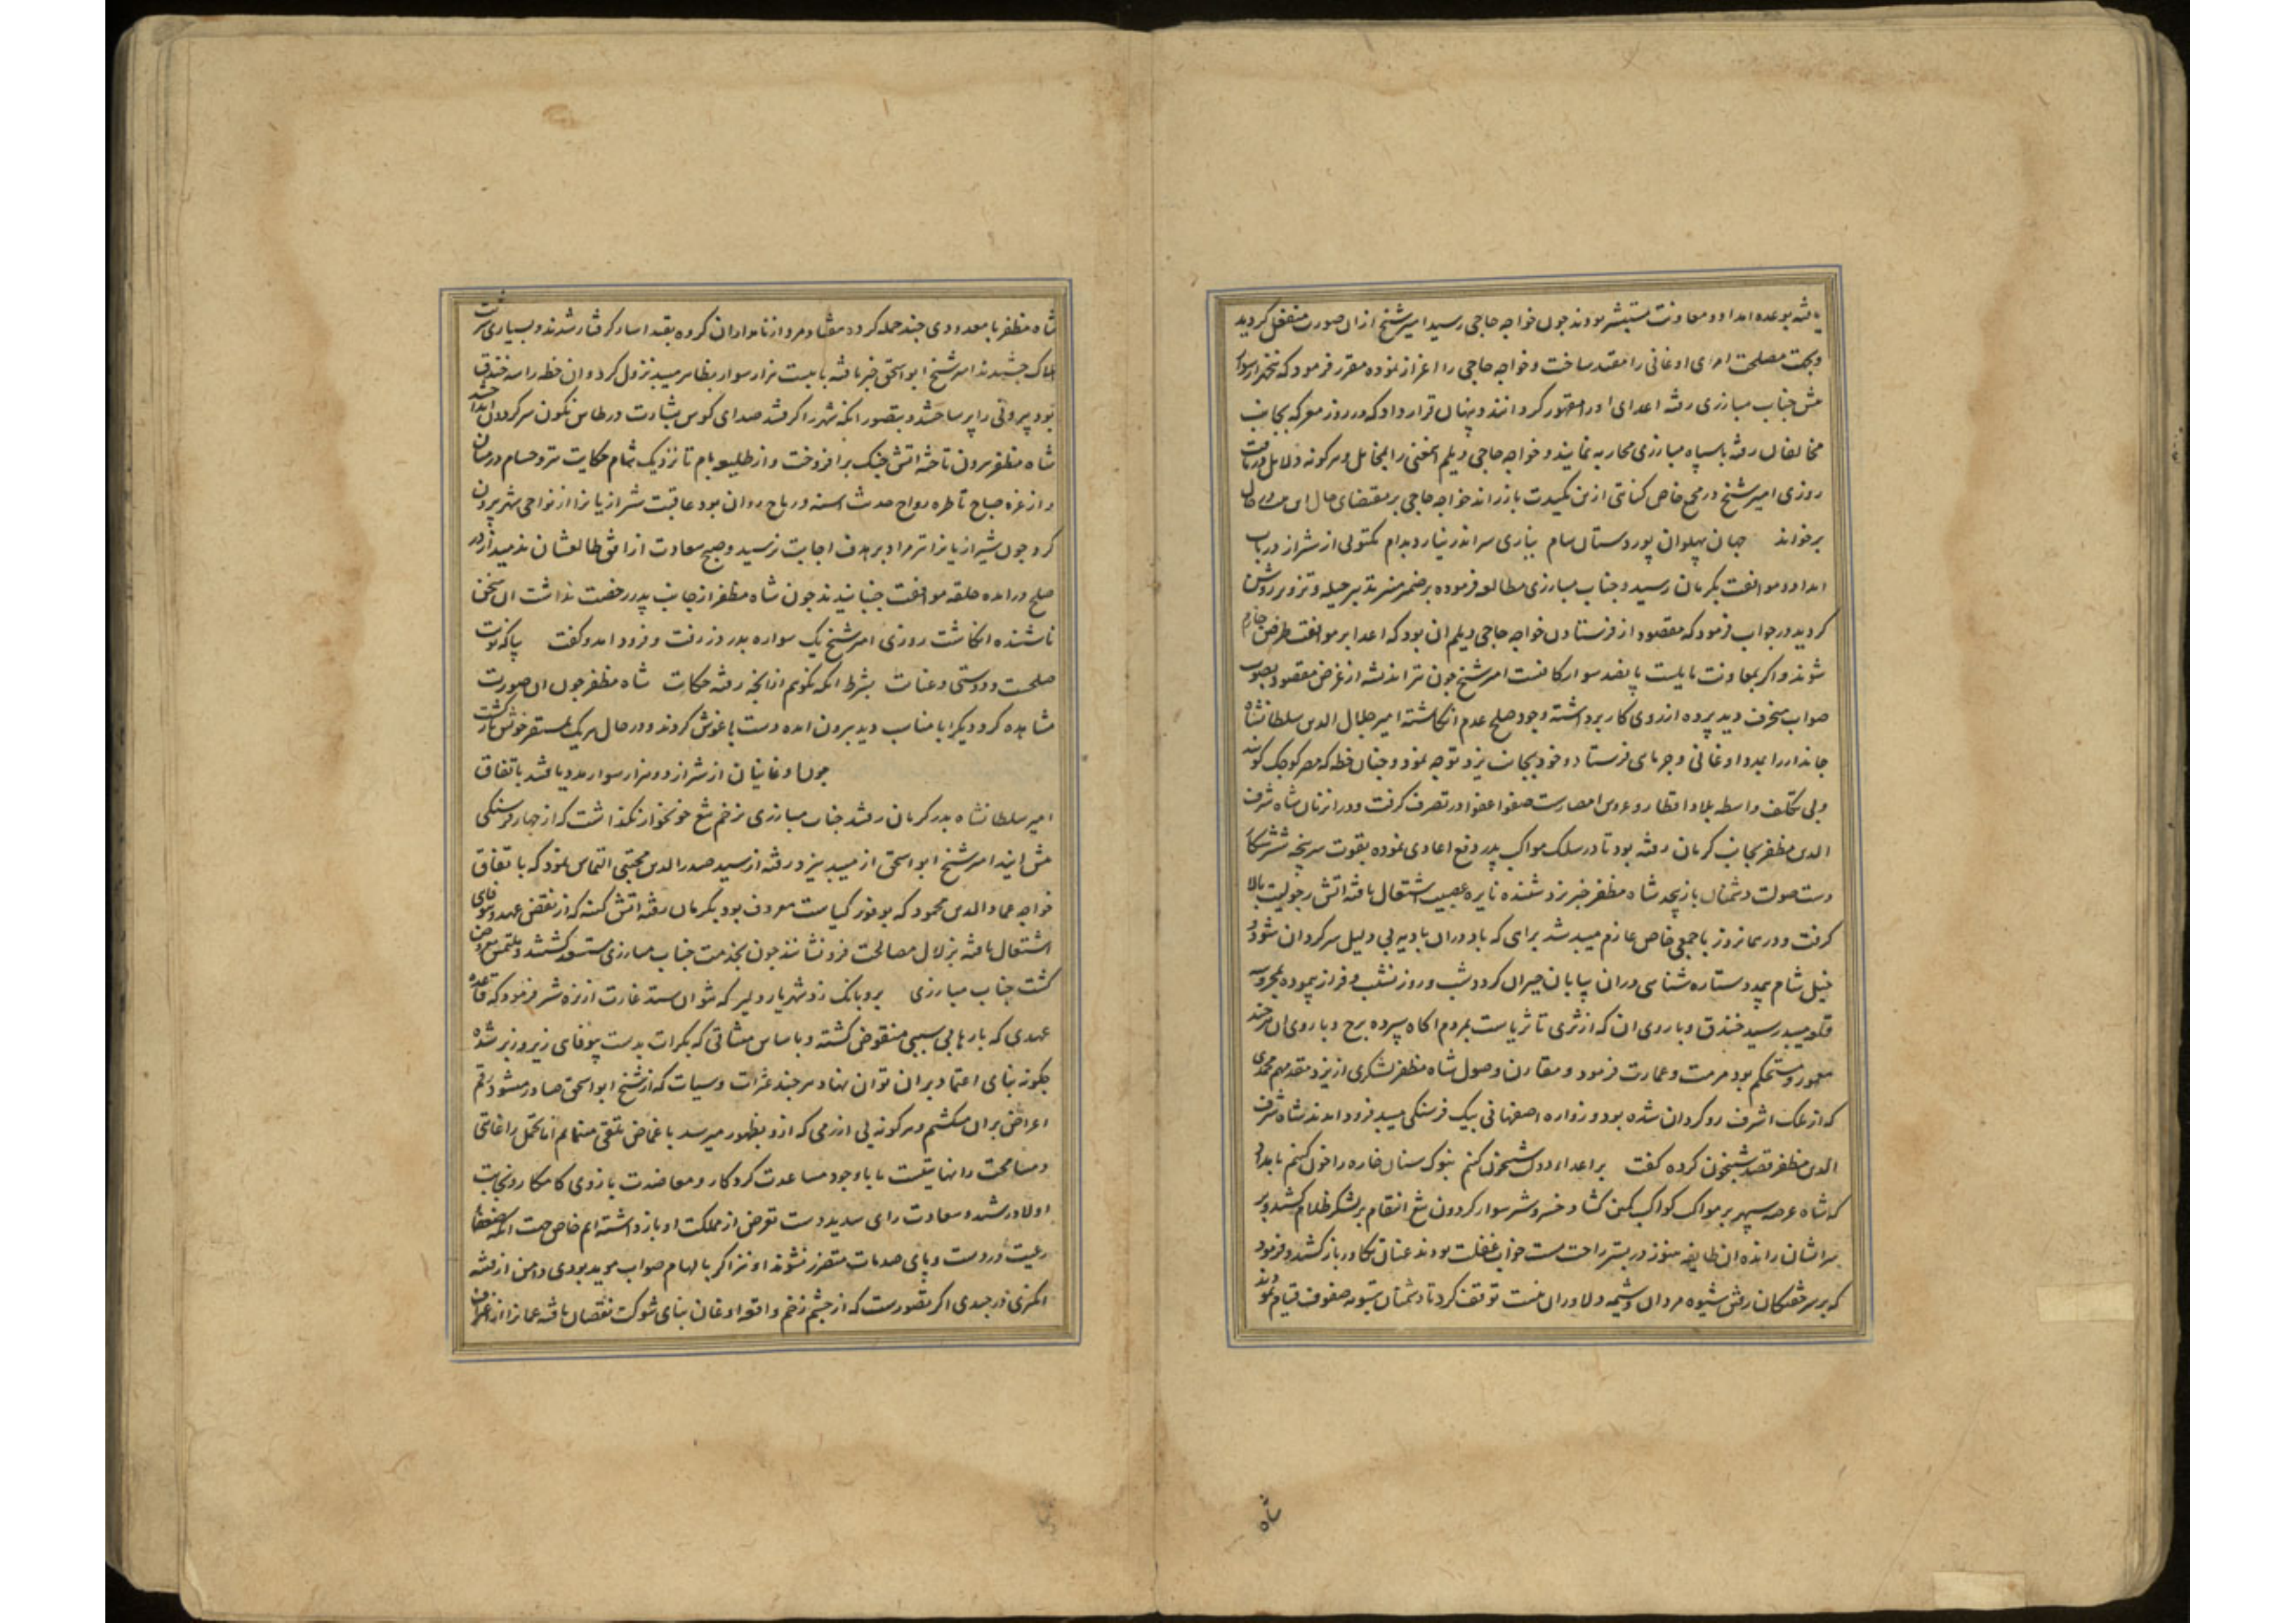 یافته بوعده امداد و معاونت مستبشر بودند جون خواجه حاجی رسید امیر شیخ ازان صورت منفعل کردید
وبجهت مصلحت امرای اوغانی را مقید ساخت و خواجه حاجی را اعزاز نموده مقرر فرمود که
جناب مبارزی رفته اعدای او را مقهور کردانند و پنهان قرار داد که در روز معرکه بجانب
مخالفان رفته با سپاه مبارزی محاربه نمایند و خواجه حاجی دیلم را و هرکونه دلایل
روزی امیر شیخ در مجمع خاص ازین باز راند خواجه حاجی بر مقتضای حال
برخواند جهان پهلوان پور دستان سام ببازی سر اندر نیارد بدام مکتوبی از شیراز در باب
امداد و موافقت بکرمان رسید و جناب مبارزی مطالعه فرموده بر ضمیر منیر تدبیر حیله و تزویر روشن
کردید در جواب فرمود که مقصود از فرستادن خواجه حاجی دیلم ان بود که اعدا بر موافقت طرفین جازم
شوند و اکر بمعاونت پانصد سوار امیر شیخ جون تیر اندیشه از غرض مقصود و بصوب
صواب منحرف دید پرده از روی کار برداشته وجود صلح عدم انکاشته امیر جلال الدین سلطانشاه
جاندار را بمدد اوغانی و جرمای فرستاد و خود بجانب یزد توجه نمود و جنان خطه که مصر کوجک کویند
و بی تکلف واسطه بلاد اقطار و عروس امصارست در تصرف کرفت و دران زمان شاه شرف
الدین مظفر بجانب کرمان رفته بود تا در سلک مواکب پدر دفع اعادی نموده بقوت سرپنجه
دست صولت دشمنان بازپیچد شاه مظفر خبر یزد شنیده نایره عصبیت اشتعال یافته اتش رجولیت بالا
کرفت و در همانروز با جمعی خاص عازم میبد شد براهی که باد دران بادیه بی دلیل سرکردان شود و
خیل شام ستاره شناسی دران بیابان حیران کردد شب و روز نشیب و فراز پیموده بمحروسه
قلعه میبد رسید خندق و باروی ان که از ثری تا ثریاست بمردم اکاه سپرده برج و باروی ان هرچند
معمور و مستحکم بود مرمت و عمارت فرمود و مقارن وصول شاه مظفر لشکری از یزد مقدمهم محمدی
که از ملک اشرف روکردان شده بود و زواره اصفهانی بیک فرسنکی میبد فرود امدند شاه شرف
الدین مظفر قصد شبیخون کرده کفت بر اعدا شبیخون کنم بنوک سنان خاره را خون کنم بامداد
که شاه عرصه سپهر بر مواکب کواکب کمین کشاد و خسرو شیرسوار کردون تیغ انتقام بر لشکر ظلام کشید بر
سر ایشان رانده ان طایفه هنوز در بستر راحت مست خواب غفلت بودند عنان تکاور بازکشید و فرمود
که بر سر خفتکان رفتن شیوه مردان و شیمه دلاوران نیست توقف کرد تا دشمنان بتسویه صفوف قیام نمودند
شاه
شاه مظفر با معدودی جند حمله کرد و هفتاد مرد از نامداران کروه بقید اسار کرفتار شدند و بسیاری شربت
هلاک جشیدند امیر شیخ ابو اسحق خبر یافته با بیست هزار سوار بظاهر میبد نزول کرد و ان خطه را سه خندق
بود بیرونی را پر ساختند و بتصور انکه شهر را کرفتند صدای کوس بشارت در طاس نکون سر کردان انداختند
شاه مظفر بیرون تاخته اتش جنک برافروخت و از طلیعه بام تا نزدیک شام حکایت تیر و حسام در میان
و از غره صباح تا طره رواح حدیث اسنه و رماح روان بود عاقبت شیرازیانرا از نواحی شهر بیرون
کرد جون شیرازیانرا تیر مراد بر هدف اجابت نرسید و صبح سعادت از افق طالعشان ندمید از در
صلح درامده حلقه موافقت جنبانیدند جون شاه مظفر از جانب پدر رخصت نداشت ان سخن
ناشنیده انکاشت روزی امیر شیخ یک سواره بدر دز رفت و فرود امد و کفت بیا که نوبت
صلحست و دوستی و عنایت بشرط انکه نکوییم ازانجه رفته حکایت شاه مظفر جون ان صورت
مشاهده کرد دیکر ابا مناسب ندید بیرون امده دست باغوش کردند و در حال هر یک بمستقر خویش بازکشت
جون اوغانیان از شیراز دو هزار سوار مدد یافتند باتفاق
امیر سلطانشاه بدر کرمان رفتند جناب مبارزی بزخم تیغ خونخوار نکذاشت که از جهار فرسنکی
پیش ایند امیر شیخ ابو اسحق از میبد بیزد رفته از سید صدر الدین مجتبی التماس نمود که باتفاق
خواجه عماد الدین محمود که بوفور کیاست معروف بود بکرمان رفته اتش کینه که از نقض عهد و
اشتعال یافته بزلال مصالحت فرو نشانند جون بخدمت جناب مبارزی مستسعد کشتند و ملتمس معروض
کشت جناب مبارزی برو بانک زد شهریار دلیر که نتوان ستد غارت از نره شیر فرمود که قاعده
عهدی که بارها بی سببی منقوض کشته و باساس میثاقی که بکرات بدست بیوفای زیر و زبر شده
جکونه بنای اعتماد بران توان نهاد هر جند عثرات و سیات که از شیخ ابو اسحق صادر میشود رقم
اعراض بران میکشیم و هر کونه بی ازرمی که ازو بظهور میرسد باغماض تلقی مینمایم اما تحمل را غایتی
و مسامحت را نهایتیست ما باوجود مساعدت کردکار و معاضدت بازوی کامکار و نجابت
اولاد رشید و سعادت رای سدید دست تعرض از مملکت او باز داشته ایم خاص جهت انکه ضعفاء
رعیت در دست و پای صدمات متضرر نشوند او نیز اکر بالهام صواب موید بودی دامن از فتنه
انکیزی درجیدی اکر بتصورست که از جشم زخم واقعه اوغان بنای شوکت نقصان یافته